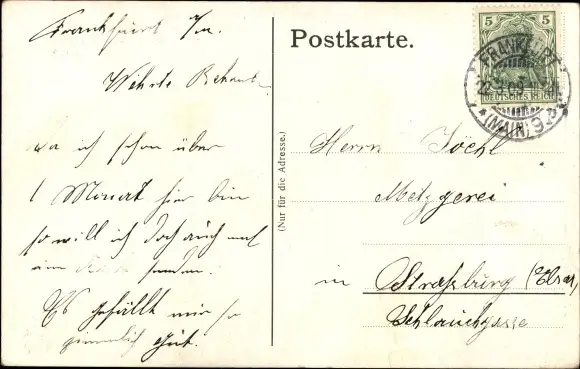 Frankfurt a/m.
Wehrte Bekannte
da ich schon über
1 Monat hier bin
so will ich doch auch mal
eine Karte senden.
Es gefällt mir so
ziemlich gut.
Postkarte.
(Nur für die Adresse.)
5 5
DEUTSCHES REICH
FRANKFURT
(MAIN) 9
Herrn Jöchl
Metzgerei
in Straßburg (Elsas)
Schlauchgasse